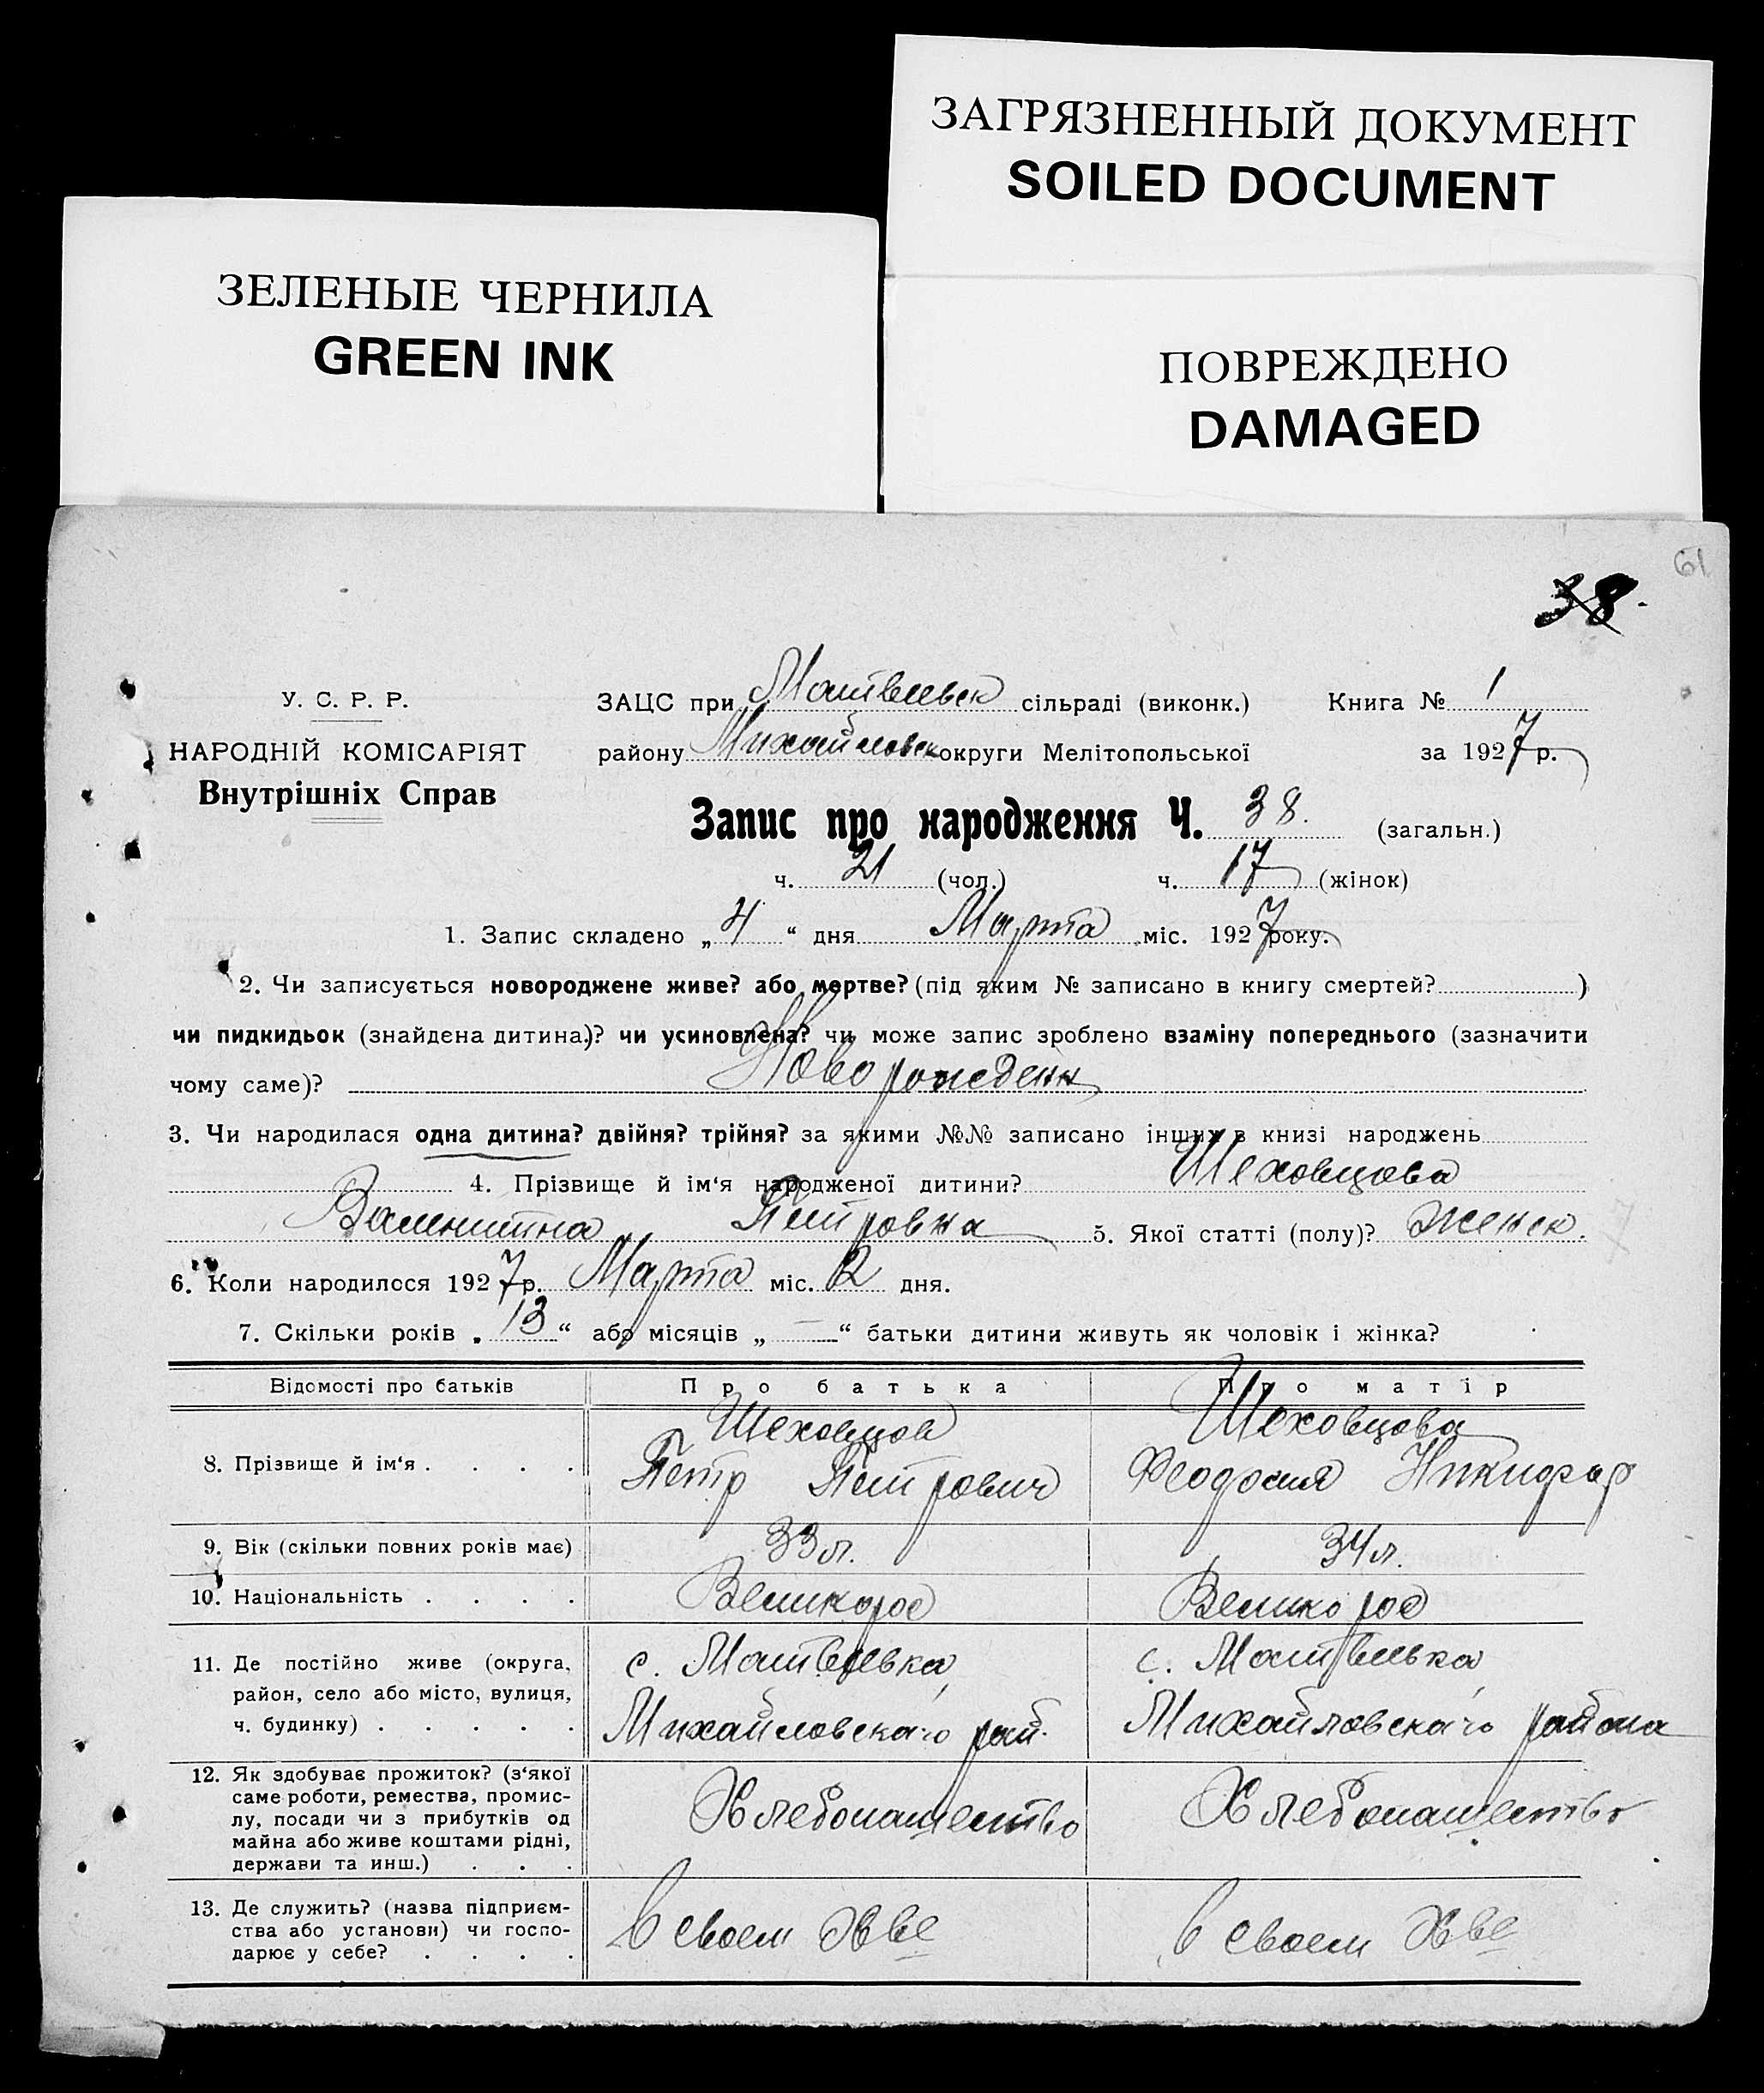 ЗАГРЯЗНЕННЫЙ ДОКУМЕНТ
SOILED DOCUMENT
ЗЕЛЕНЫЕ ЧЕРНИЛА
GREEN INK
ПОВРЕЖДЕНО
DAMAGED
61
38.
У. С. Р. Р.
НАРОДНІЙ КОМІСАРІЯТ
Внутрішніх Справ
ЗАЦС при Матвеевск сільраді (виконк.) Книга № 1
району Михайловск округи Мелітопольської за 1927 р.
Запис про народження Ч. 38. (загальн.)
ч. 21 (чол.) ч. 17 (жінок)
1. Запис складено „4“ дня Марта міс. 1927 року.
2. Чи записується новороджене живе? або мертве? (під яким № записано в книгу смертей? )
чи пидкидьок (знайдена дитина)? чи усиновлена? чи може запис зроблено взаміну попереднього (зазначити
чому саме)? Новорожденн
3. Чи народилася одна дитина? двійня? трійня? за якими №№ записано інших в книзі народжень
4. Прізвище й ім'я народженої дитини? Шеховцова
Валентина Петровна 5. Якої статті (полу)? женск.
6. Коли народилося 1927 р. Марта міс. 2 дня.
7. Скільки років „13“ або місяців „—“ батьки дитини живуть як чоловік і жінка?
Відомості про батьків Про батька Про матір
8. Прізвище й ім'я . . . . Шеховцов Петр Петрович Шеховцова Феодосия Никифор
9. Вік (скільки повних років має) 33 л. 34 л.
10. Національність . . . . Великорос Великорос
11. Де постійно живе (округа, с. Матвеевка, с. Матвеевка
район, село або місто, вулиця,
ч. будинку) . . . . . Михайловскаго рай. Михайловскаго района
12. Як здобуває прожиток? (з'якої
саме роботи, ремества, промис-
лу, посади чи з прибутків од Хлебопашество Хлебопашество
майна або живе коштами рідні,
держави та инш.) . . .
13. Де служить? (назва підприєм-
ства або установи) чи госпо- в своем хвѣ в своем хвѣ
дарює у себе? . . . .